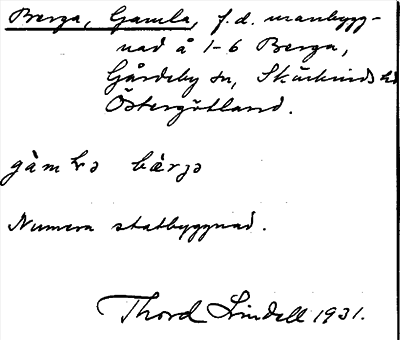 Berga, Gamla, f.d. manbygg-
nad å 1-6 Berga,
Gårdeby sn, Skärkinds hd
Östergötland.
gàmḷɘ bæ̀rjɘ
Numera statbyggnad.
Thord Lindell 1931.